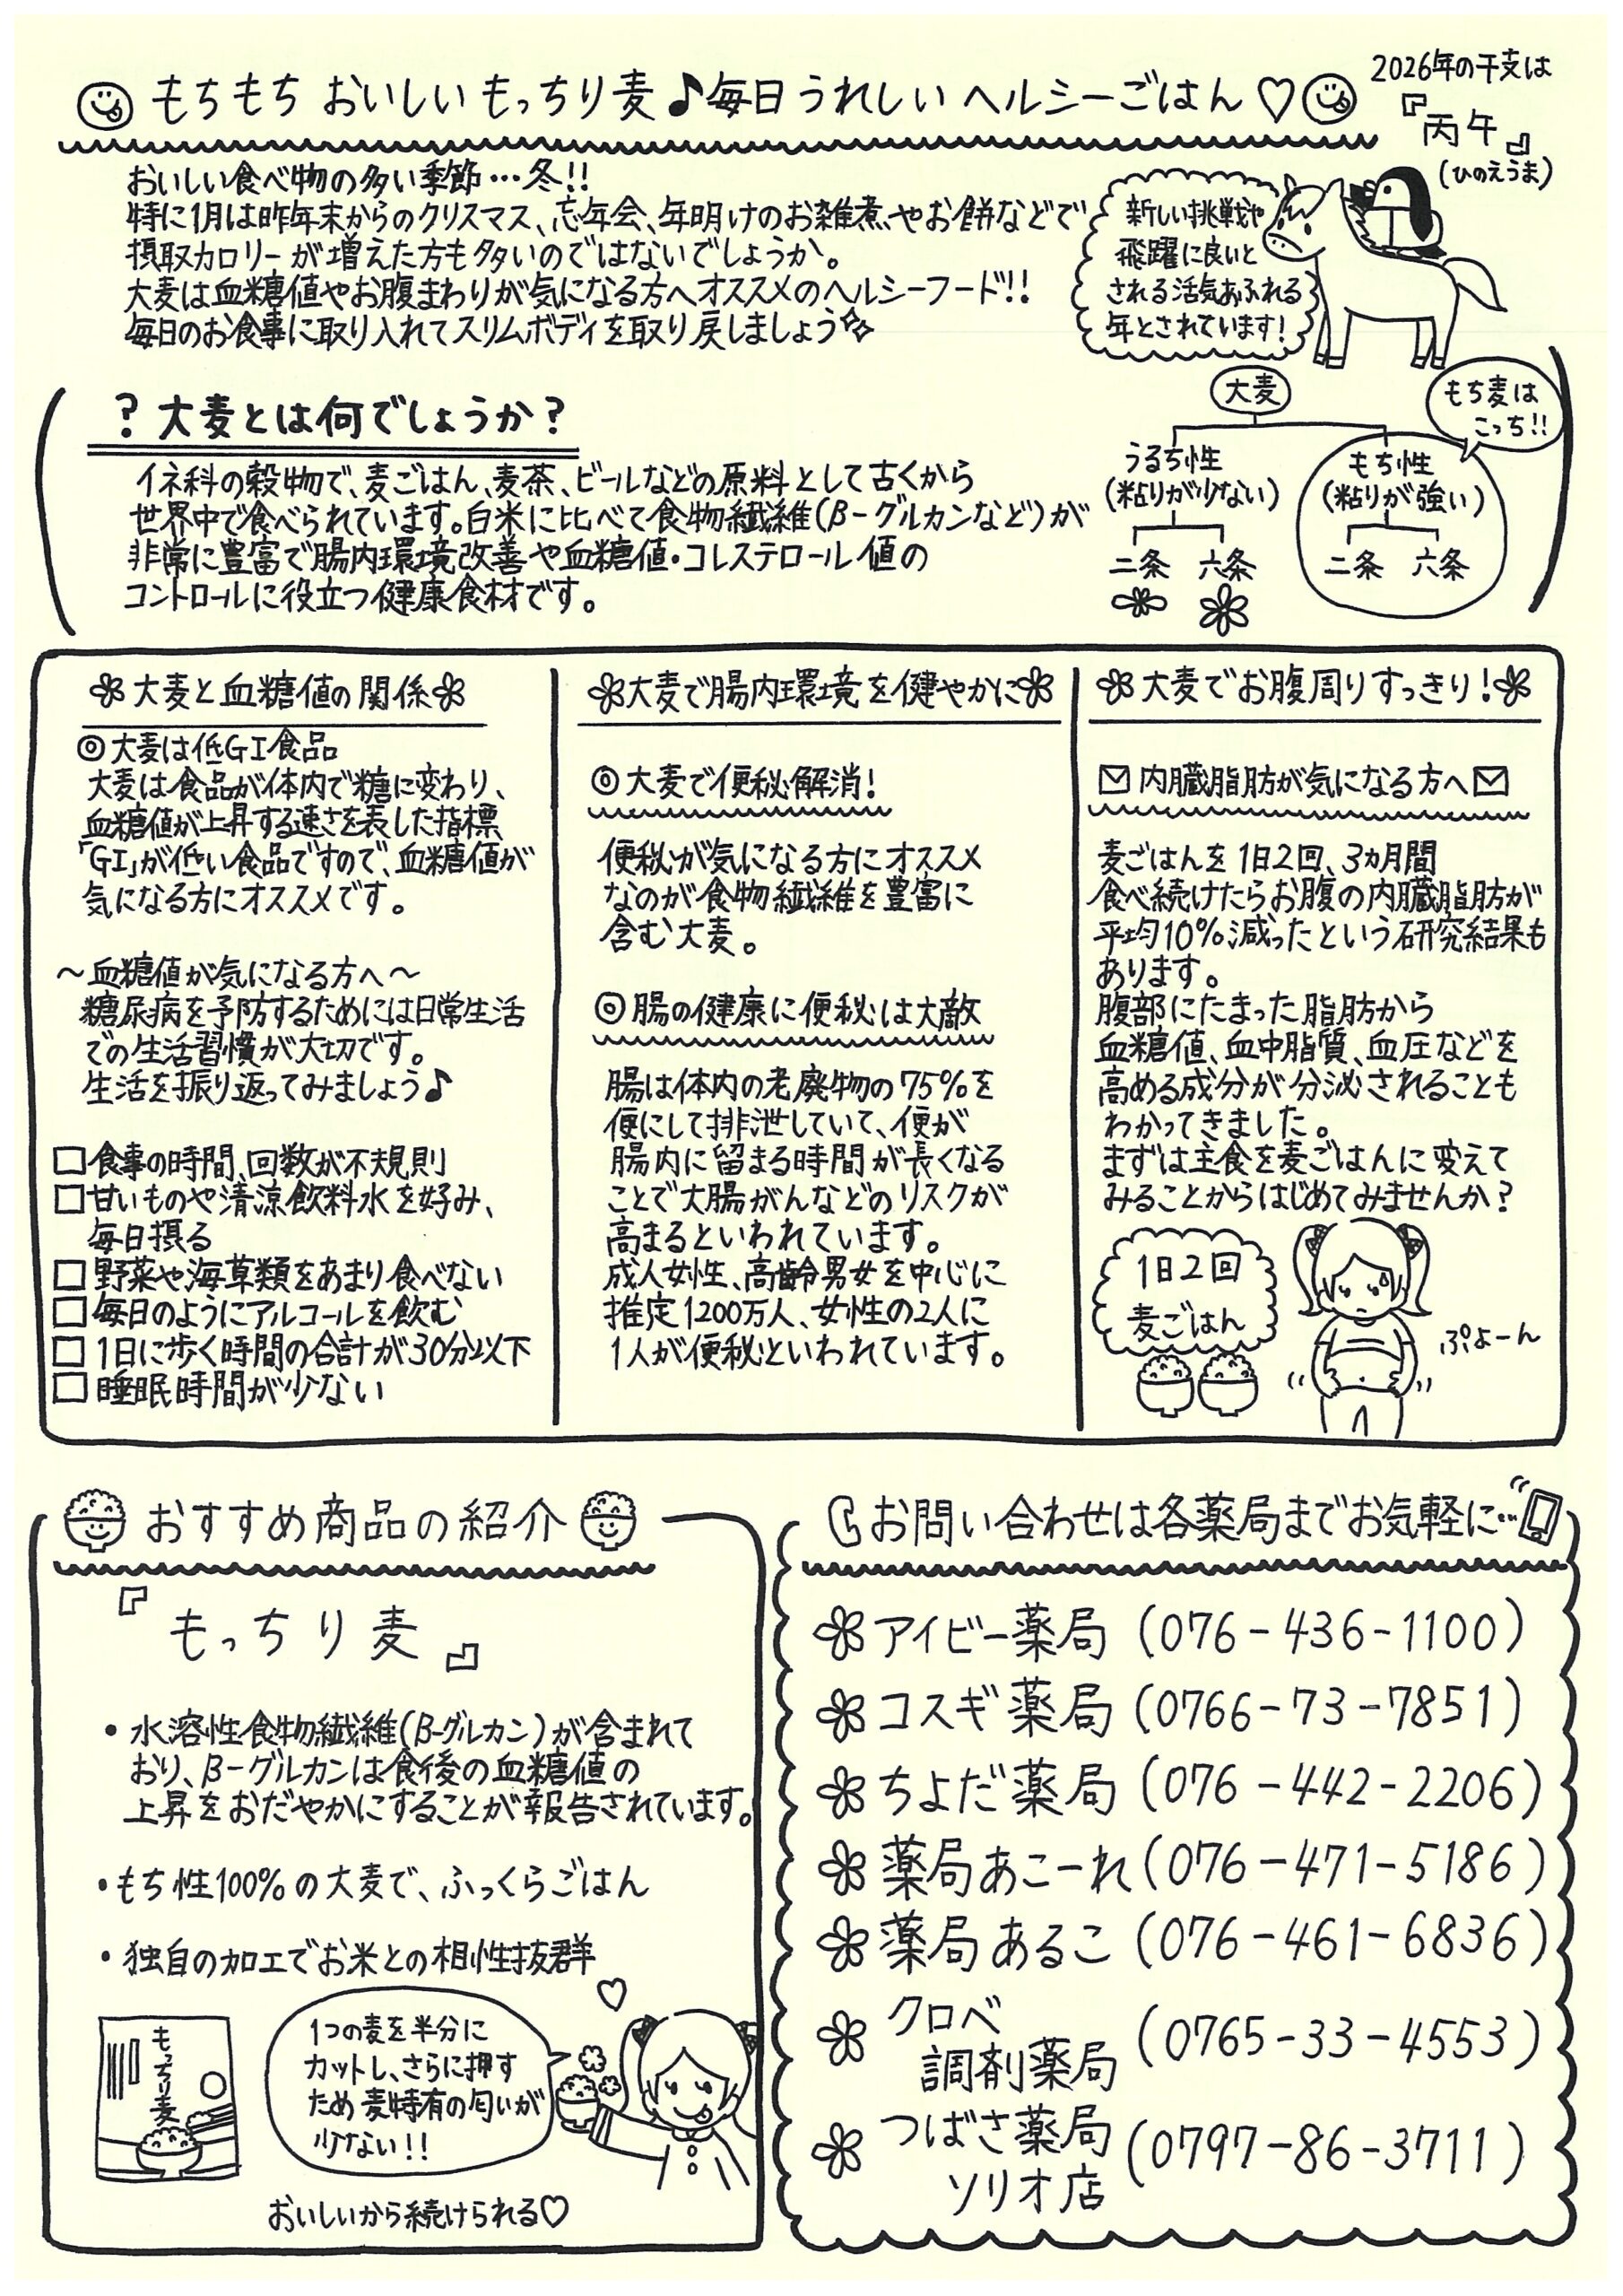 もちもち おいしい もっちり麦♪毎日うれしい ヘルシーごはん♡
2026年の干支は
『丙午』
(ひのえうま)
おいしい食べ物の多い季節…冬!!
特に1月は昨年末からのクリスマス、忘年会、年明けのお雑煮やお餅などで
摂取カロリーが増えた方も多いのではないでしょうか。
大麦は血糖値やお腹まわりが気になる方へオススメのヘルシーフード!!
毎日のお食事に取り入れてスリムボディを取り戻しましょう
新しい挑戦や
飛躍に良いと
される活気あふれる
年とされています!
?大麦とは何でしょうか?
イネ科の穀物で、麦ごはん、麦茶、ビールなどの原料として古くから
世界中で食べられています。白米に比べて食物繊維(β-グルカンなど)が
非常に豊富で腸内環境改善や血糖値・コレステロール値の
コントロールに役立つ健康食材です。
大麦
もち麦は
こっち!!
うるち性
(粘りが少ない)
二条 六条
もち性
(粘りが強い)
二条 六条
大麦と血糖値の関係
◎大麦は低GI食品
大麦は食品が体内で糖に変わり、
血糖値が上昇する速さを表した指標
「GI」が低い食品ですので、血糖値が
気になる方にオススメです。
~血糖値が気になる方へ~
糖尿病を予防するためには日常生活
での生活習慣が大切です。
生活を振り返ってみましょう♪
□食事の時間、回数が不規則
□甘いものや清涼飲料水を好み、
毎日摂る
□野菜や海草類をあまり食べない
□毎日のようにアルコールを飲む
□1日に歩く時間の合計が30分以下
□睡眠時間が少ない
大麦で腸内環境を健やかに
◎大麦で便秘解消!
便秘が気になる方にオススメ
なのが食物繊維を豊富に
含む大麦。
◎腸の健康に便秘は大敵
腸は体内の老廃物の75%を
便にして排泄していて、便が
腸内に留まる時間が長くなる
ことで大腸がんなどのリスクが
高まるといわれています。
成人女性、高齢男女を中心に
推定1200万人、女性の2人に
1人が便秘といわれています。
大麦でお腹周りすっきり!
内臓脂肪が気になる方へ
麦ごはんを1日2回、3ヵ月間
食べ続けたらお腹の内臓脂肪が
平均10%減ったという研究結果も
あります。
腹部にたまった脂肪から
血糖値、血中脂質、血圧などを
高める成分が分泌されることも
わかってきました。
まずは主食を麦ごはんに変えて
みることからはじめてみませんか?
1日2回
麦ごはん
ぷよーん
おすすめ商品の紹介
『もっちり麦』
・水溶性食物繊維(β-グルカン)が含まれて
おり、β-グルカンは食後の血糖値の
上昇をおだやかにすることが報告されています。
・もち性100%の大麦で、ふっくらごはん
・独自の加工でお米との相性抜群
もっちり麦
1つの麦を半分に
カットし、さらに押す
ため麦特有の匂いが
少ない!!
おいしいから続けられる♡
お問い合わせは各薬局までお気軽に…
アイビー薬局(076-436-1100)
コスギ薬局(0766-73-7851)
ちよだ薬局(076-442-2206)
薬局あこーれ(076-471-5186)
薬局あるこ(076-461-6836)
クロベ
調剤薬局(0765-33-4553)
つばさ薬局
ソリオ店(0797-86-3711)